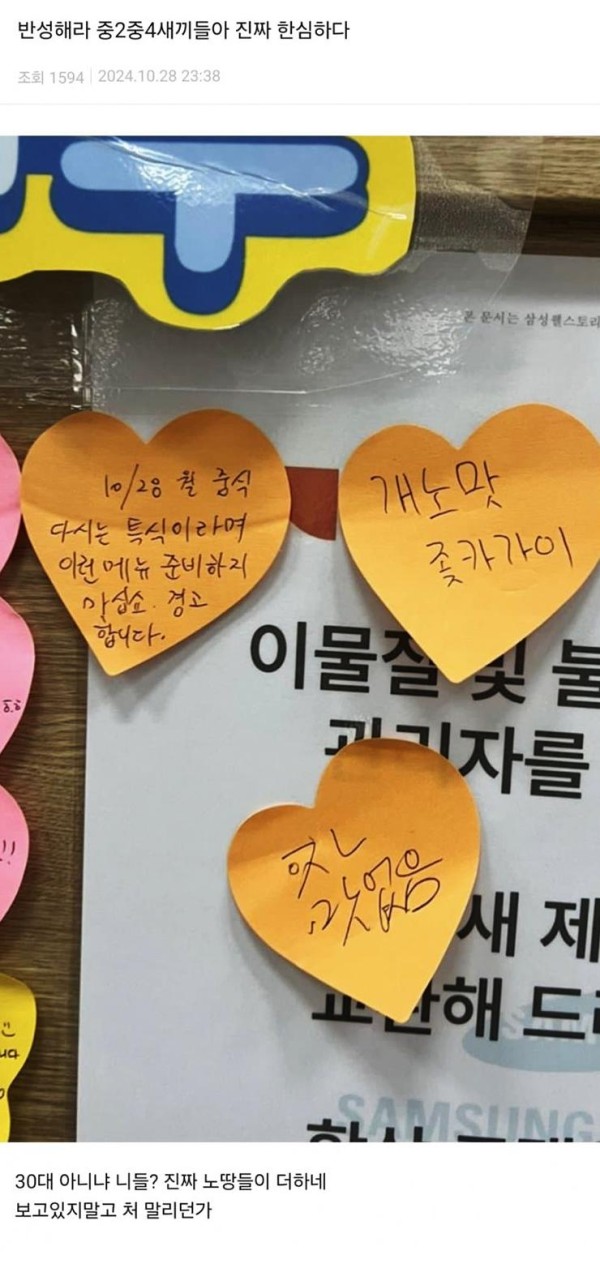 반성해라 중2중4새끼들아 진짜 한심하다
조회 1594 | 2024.10.28 23:38
본 문서는 삼성웰스토리
10/28 월 중식
다시는 특식이라며
이런 메뉴 준비하지
마십쇼. 경고
합니다.
개노맛
좆카가이
이물질 및 불
관리자를
맛없음
새 제
교환해 드
SAMSUNG
!!
30대 아니냐 니들? 진짜 노땅들이 더하네
보고있지말고 처 말리던가